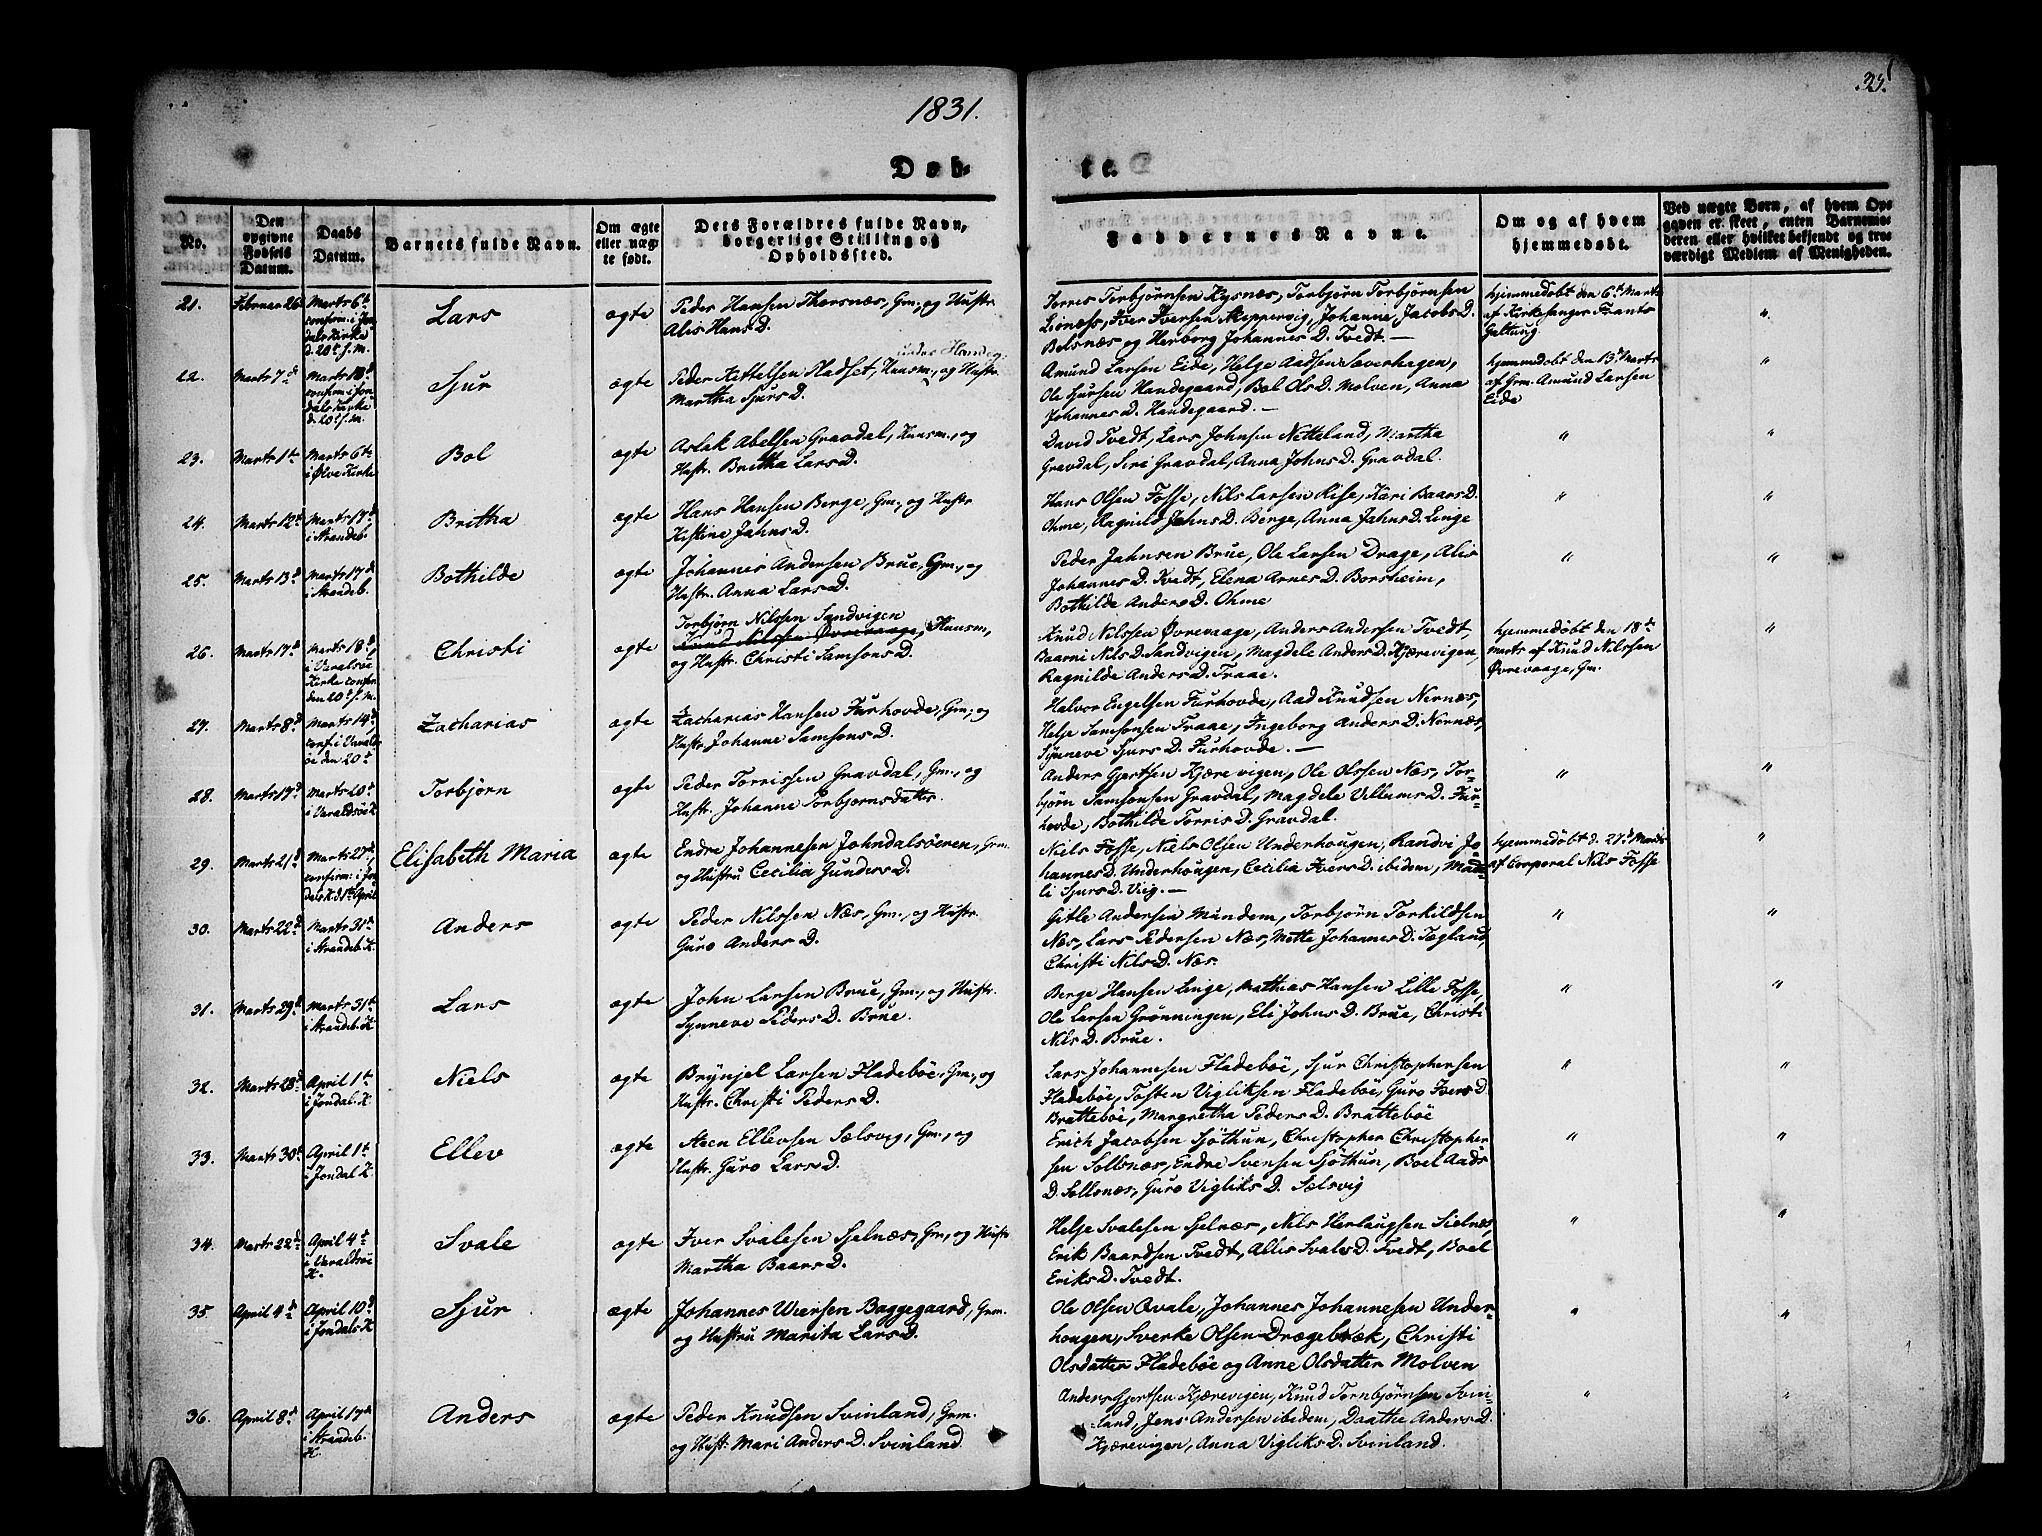 1831.
33.
Døb-
te.
No.
Den opgivne Fødsels Datum.
Daabs Datum.
Barnets fulde Navn.
Om ægte eller uægte født.
Dets Forældres fulde Navn, borgerlige Stilling og Opholdssted.
Faddernes Navne.
Om og af hvem hjemmedøbt.
Ved uægte Børn, af hvem Opgaven er skeet, enten Barnemoderen eller hvilket bekjendt og troværdigt Medlem af Menigheden.
21. Februar 26 Marts 6te confirm: i Jondals Kirke d. 20t s.M.
Lars
ægte
Peder Hansen Thorsnæs, Gm; og Hustr.
Alis Hans D.
Torres Torbjørnsen Kysnæs, Torbjørn Torbjørnsen
Lionæss, Iver Iversen Skippervig, Johanne Jacobs D.
Belsnæs og Herborg Johannes D. Tvedt. —
hjemmedøbt den 6te Marts
af Kirkesanger Frants
Galtung
"
22. Marts 7de Marts 18d confirm: i Jondals Kirke d. 20t s.M.
Sjur
ægte
under Handeg:
Peder Kettelsen Fladset, Huusm., og Hustr.
Martha Sjurs D.
Amund Larsen Eide, Helge Aadsen Saverhagen,
Ole Sjursen Handegaard, Bol Ols D. Molven, Anna
Johannes D. Handegaard. —
hjemmedøbt den 13d Marts
af Grm. Amund Larsen
Eide
"
23. Marts 1te Marts 6te i Ølve Kirke
Bol
ægte
Aslak Abelsen Gravdal, Huusm., og
Hustr. Britha Lars D.
David Tvedt, Lars Johnsen Netteland, Martha
Gravdal, Siri Gravdal, Anna Johns D. Gravdal.
"
"
24. Marts 12te Marts 17d i Strandeb.
Britha
ægte
Hans Hansen Berge, Gm; og Hustr
Kistine Jahns D.
Hans Olsen Fosse, Nils Larsen Rise, Kari Baars D.
Ohme, Ragnild Jahns D. Berge, Anna Jahns D. Linge
"
"
25. Marts 13d Marts 17d i Strandeb.
Bothilde
ægte
Johannes Andersen Brue, Gm., og
Hustr. Anna Lars D.
Peder Jahnsen Brue, Ole Larsen Drage, Alis
Johannes D. Tvedt, Elena Arnes D. Borsheim,
Bothilde Anders D. Ohme
"
"
26. Marts 17d Marts 18d, i Varaldsöe Kirke confir. den 20t s.M.
Christi
ægte
Torbjørn Nilssen Sandvigen
Knud Nilssen Øvrevaage, Huusm,
og Hustr. Christi Samsons D.
Knud Nilssen Øvrevaage, Anders Andersen Tvedt,
Baarni Nils D. Sandvigen, Magdele Anders D. Kjærevigen,
Ragnilde Anders D. Traae.
hjemmedøbt den 18te
Marts af Knud Nilssen
Øvrevaage, Gm.
"
27. Marts 8d Marts 14d, conf. i Varaldsöe den 20t
Zacharias
ægte
Zacharias Hansen Furhovde, Gm; og
Hustr. Johanne Samsons D.
Halvor Engelsen Furhovde, Aad Knudsen Nernæs,
Helje Samsonsen Traae, Ingeborg Anders D. Nernæs,
Synneve Sjurs D. Furhovde. —
28. Marts 17d Marts 20t i Varaldsöe K
Torbjørn
ægte
Peder Torrissen Gravdal, Gm., og
Hustr. Johanne Torbjørnsdattr.
Anders Gjertsen Kjærevigen, Ole Olssen Næs, Tor-
bjørn Samsonsen Gravdal, Magdele Villums D. Fur-
hovde, Bothilde Torris D. Gravdal.
"
"
29. Marts 21d Marts 27d, confirm: i Jondals K. d. 1te April
Elisabeth Maria
ægte
Endre Johannesen Johndalsøeren, Grm.
og Hustru Cecilia Gunders D.
Niels Fosse, Niels Olsen Underhougen, Randvi Jo-
hannes D. Underhougen, Cecilia Ivers D. ibidem, Mad-
li Sjurs D. Viig. —
hjemmedøbt d. 27d Marts
af Corporal Niels Fosse
"
30. Marts 22d Marts 31te i Strandeb. K.
Anders
ægte
Peder Nilssen Næs, Gm., og Hustr.
Guro Anders D.
Gitle Andersen Mundem, Torbjørn Torkildsen
Næs, Lars Pedersen Næs, Mette Johannes D. Tegland,
Christi Nils D. Næs.
"
"
31. Marts 29d Marts 31te i Strandeb. K
Lars
ægte
John Larsen Brue, Gm., og Hustr.
Synneve Peders D. Brue.
Berge Hansen Linge, Mathias Hansen Lille Fosse,
Ole Larsen Grønningen, Eli Johns D. Brue, Christi
Nils D. Brue.
"
"
32. Marts 28d April 1te i Jondal. K
Niels
ægte
Brynjel Larsen Fladebøe, Gm., og
Hustr. Christi Peders D.
Lars Johannesen Fladebøe, Sjur Christophersen
Fladebøe, Tosten Vigliksen Fladebøe, Guro Ivers D.
Brattebøe, Margretha Peders D. Brattebøe
"
"
33. Marts 30te April 1te i Jondal K.
Ellev
ægte
Steen Ellevsen Sælsvig, Gm., og
Hustr. Guro Lars D.
Erich Jacobsen Sjöthun, Christopher Christopher
sen Solbnæs, Endre Svensen Sjöthun, Boel Aads
D. Solsnæs, Guro Vigliks D. Sælsvig
"
"
34. Marts 22d April 4te i Varaldsöe K.
Svale
ægte
Iver Svalesen Sjelnæs, Gm, og Hustr
Martha Baars D.
Helje Svalesen Sjelnæs, Nils Herlaugsen Sjelnæs,
Erik Baardsen Tvedt, Allis Svales D. Tvedt, Boel
Eriks D. Tvedt.
"
"
35. April 4de April 10d i Jondals K
Sjur
ægte
Johannes Wiersen Baggegaard, Grm.
og Hustru Marita Lars D.
Ole Olsen Qvale, Johannes Johannesen Under-
hougen, Sverke Olsen Drægebæk, Christi
Olsdatter Fladebøe og Anne Olsdatter Molven
"
"
36. April 8de April 17d i Strandeb. K.
Anders
ægte
Peder Knudsen Svinland, Grm.
og Hustr. Mari Anders D. Svinland.
Anders Gjertsen Kjærevigen, Knud Tornbjørnsen Svin-
land, Jens Andersen ibidem, Daathe Anders D.
Kjærevigen, Anna Vigliks D. Svinland.
"
"